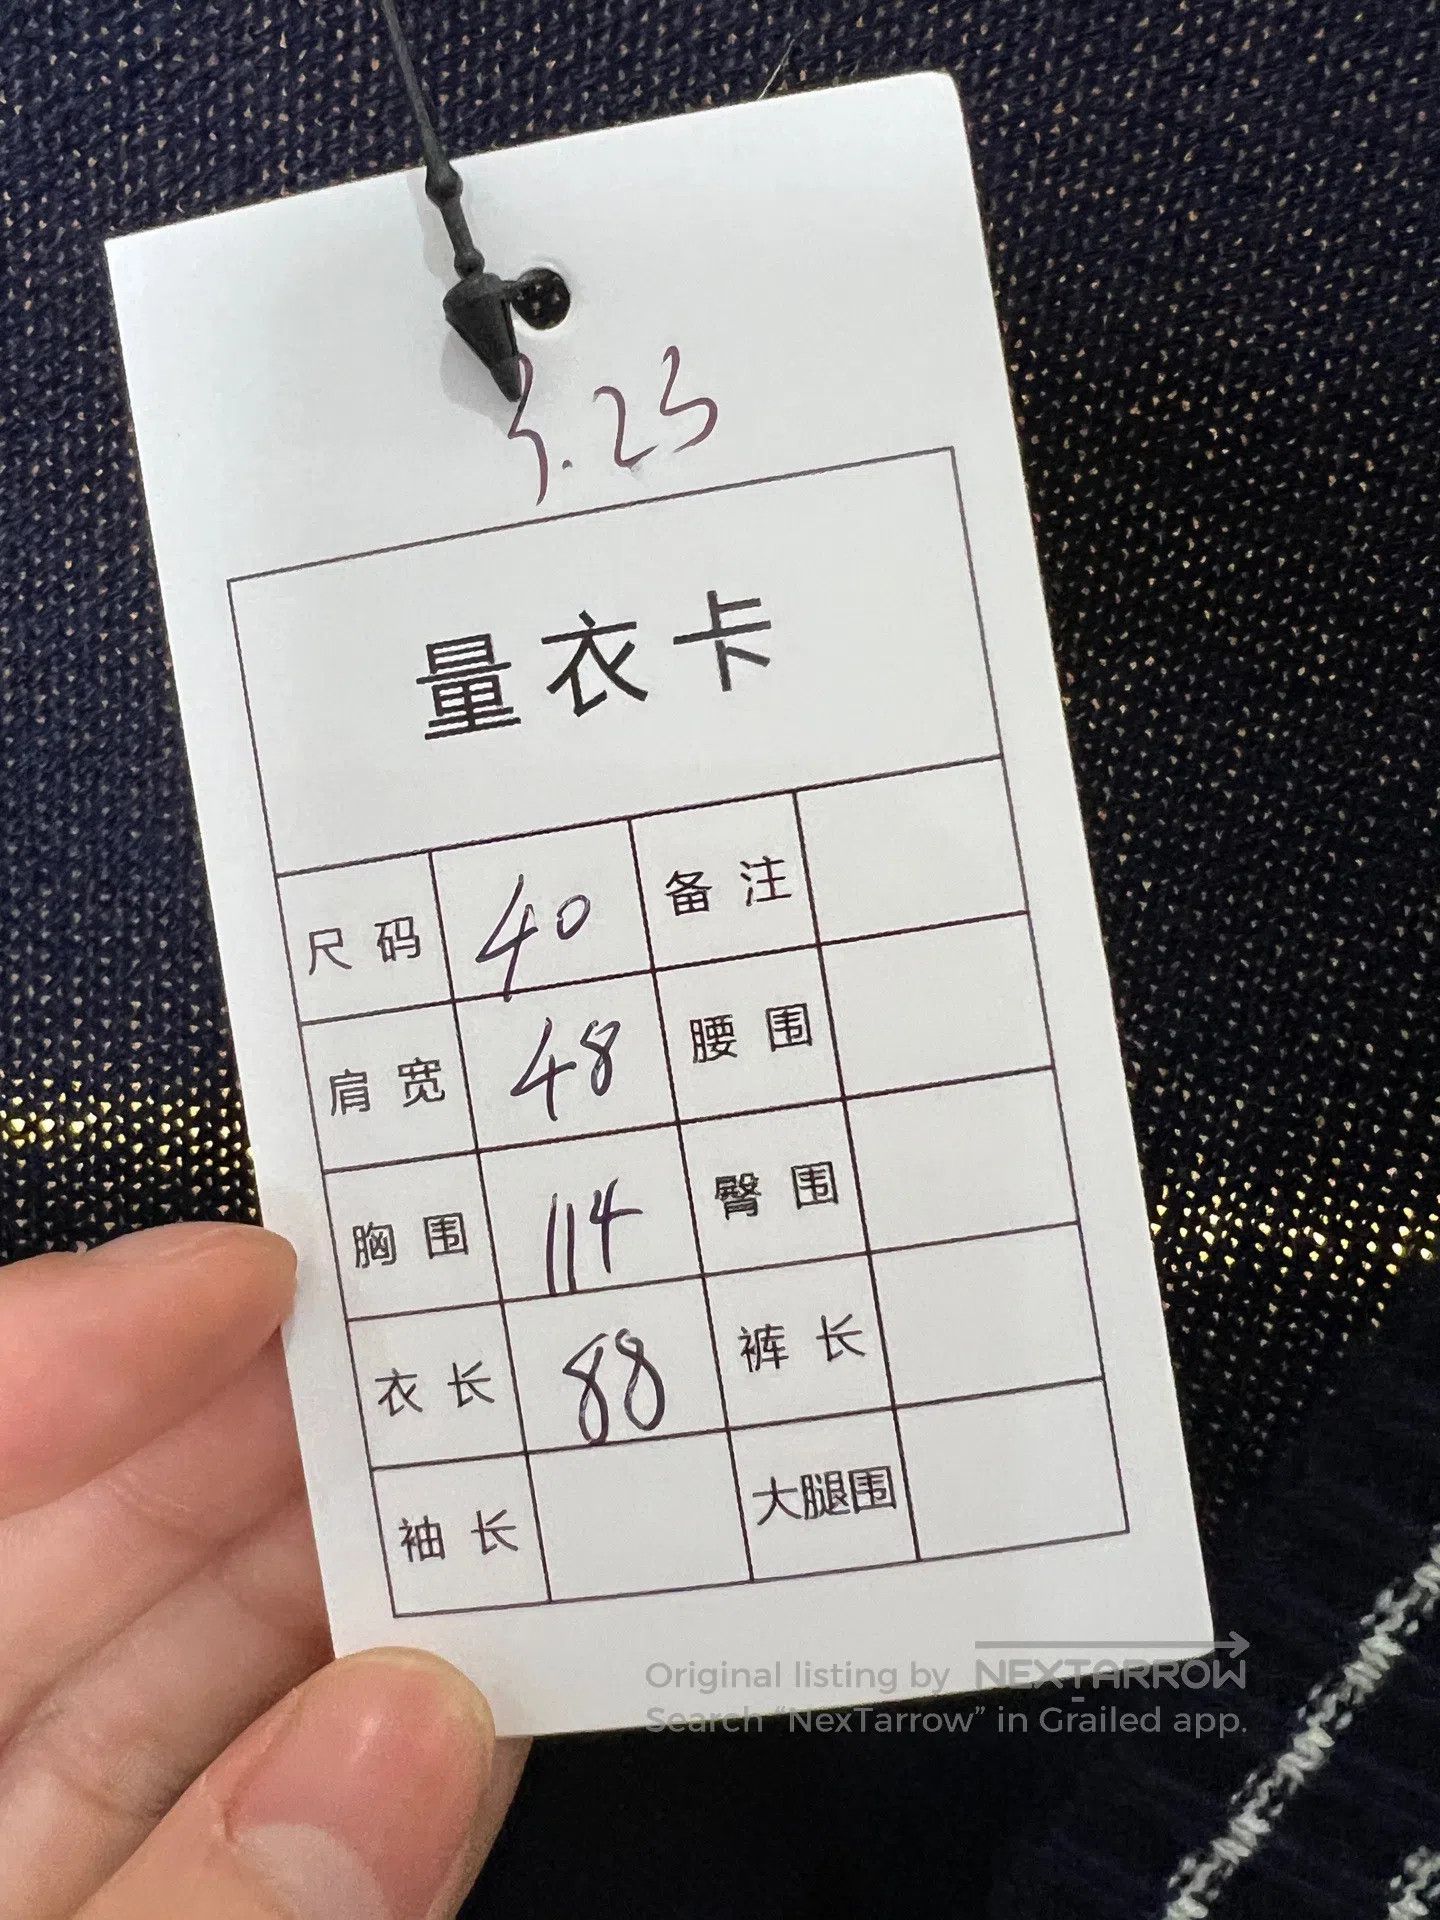 3.25
量衣卡
尺码 40 备注
肩宽 48 腰围
胸围 114 臀围
衣长 88 裤长
袖长 大腿围
Original listing by NEXTARROW
Search “NexTarrow” in Grailed app.